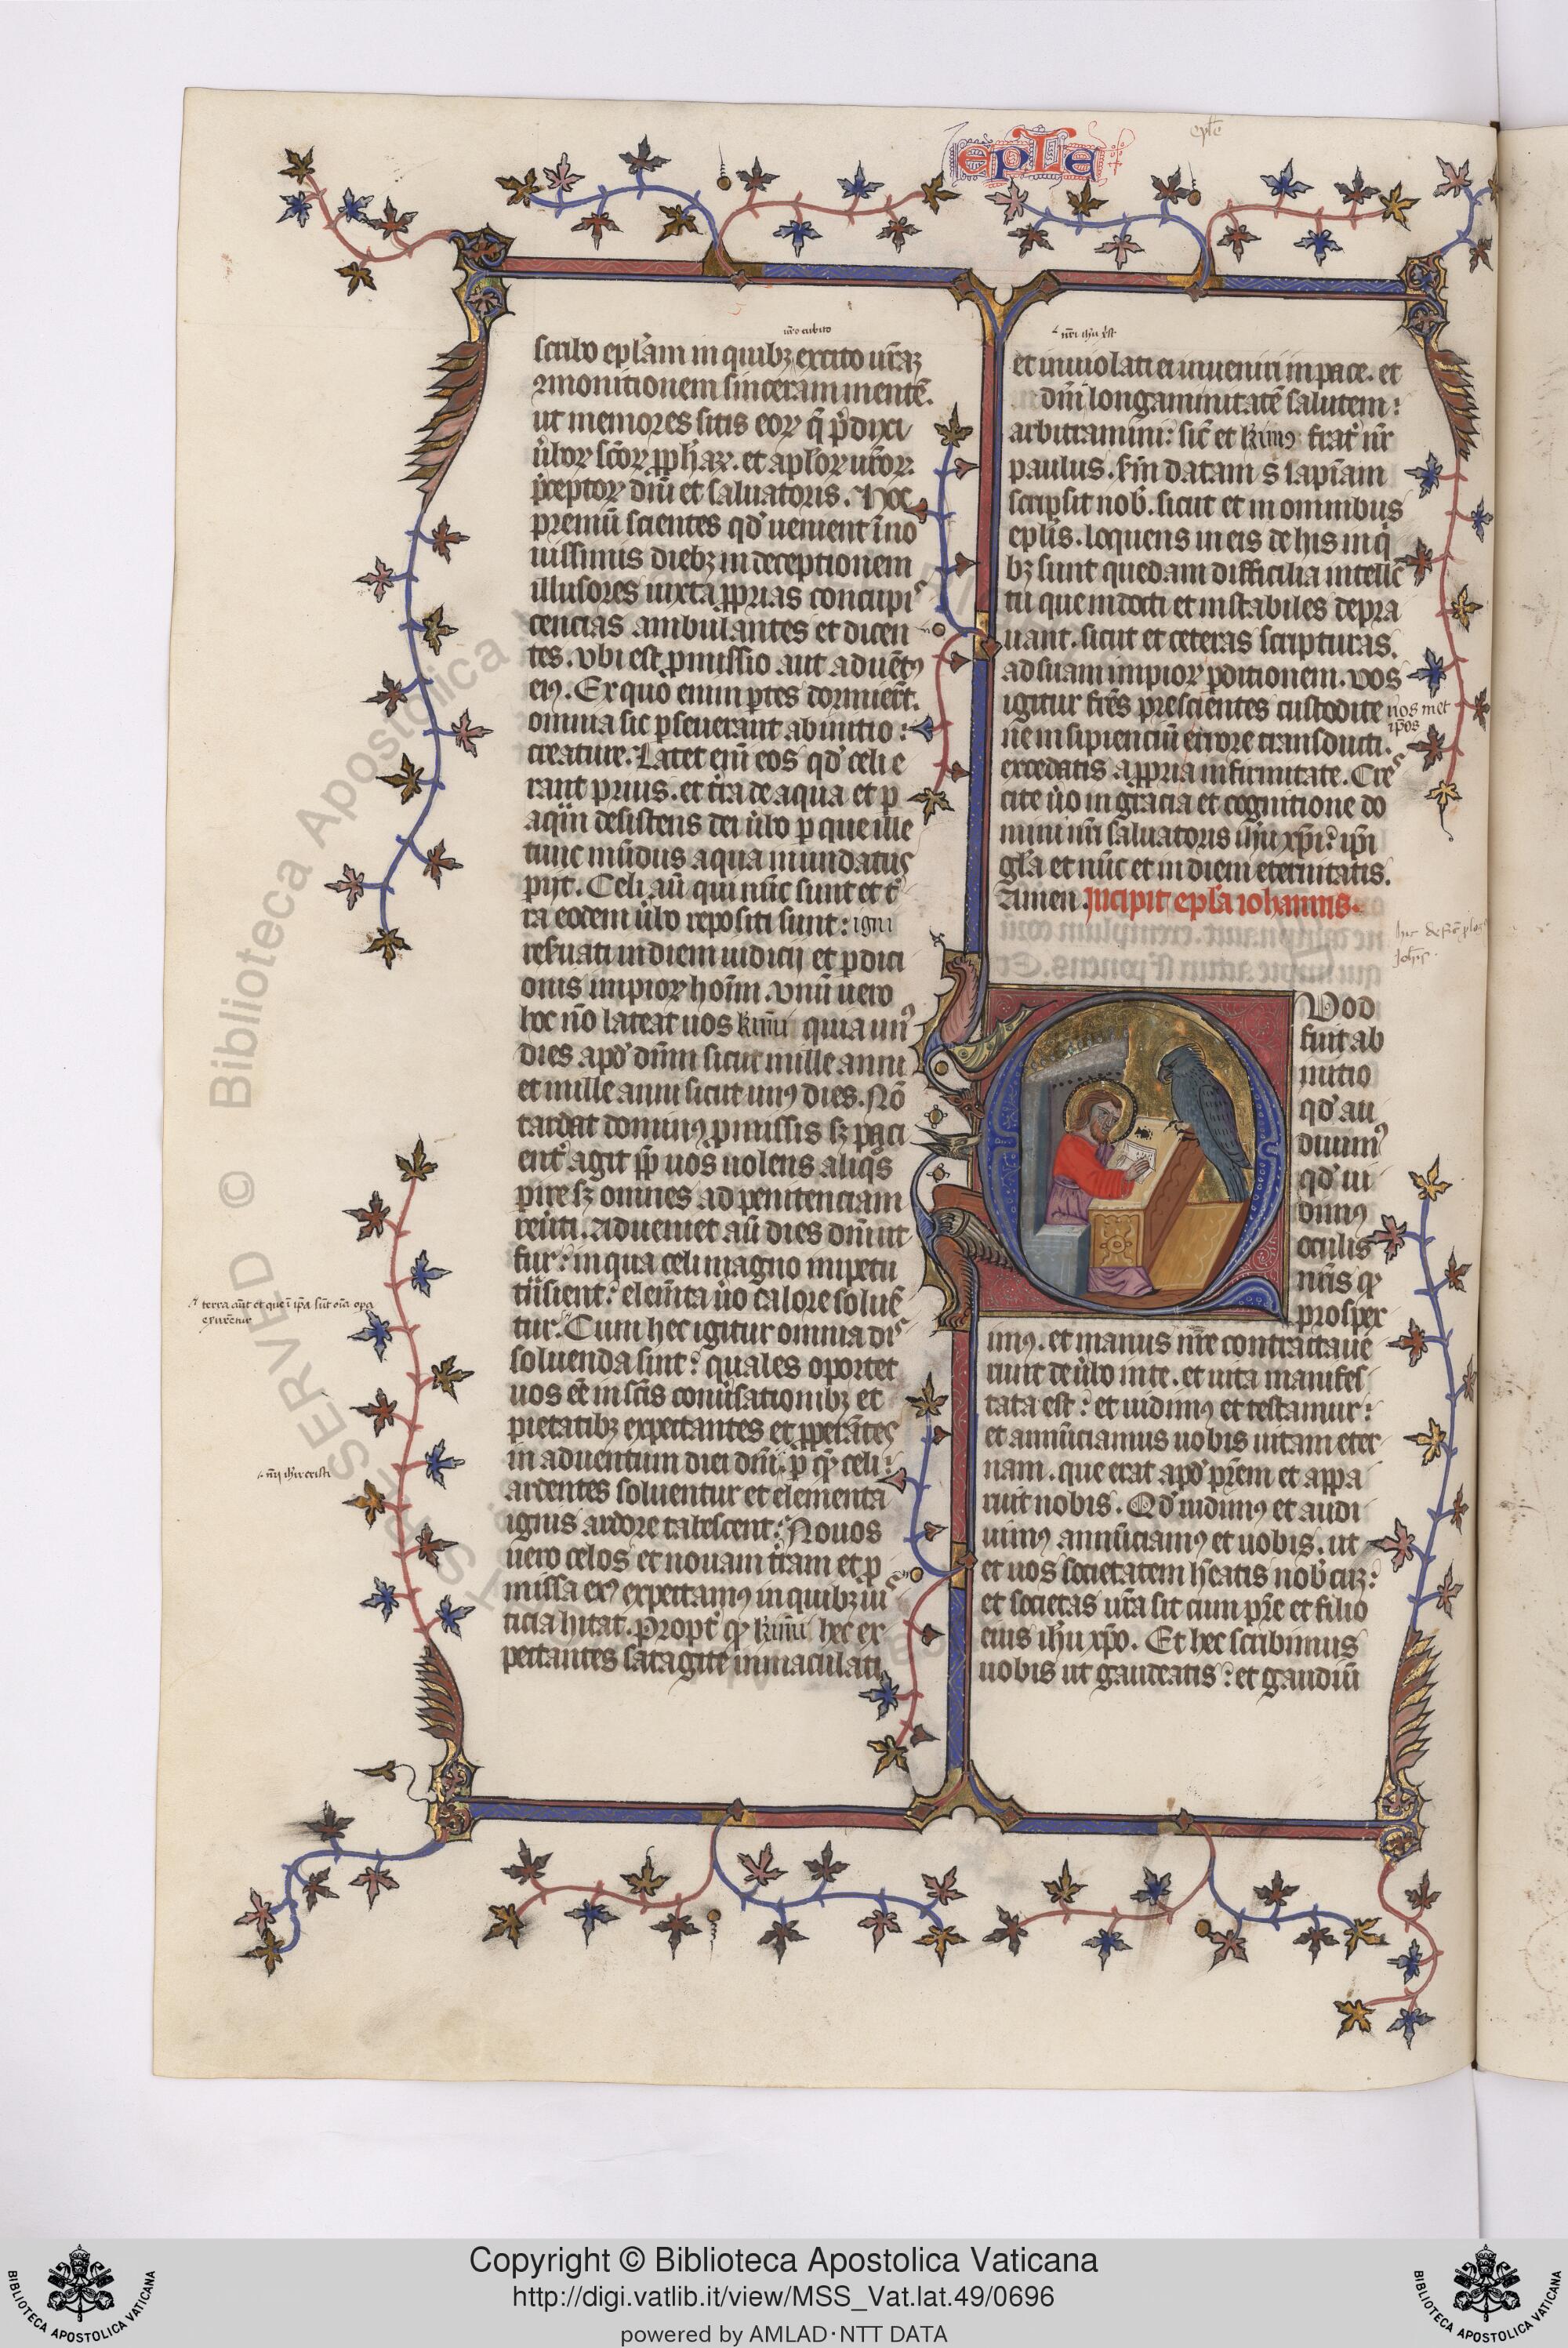 epłe
epła
scribo epłam in quibꝫ excito uraꝫ
ꝯmonitionem sinceram mentē.
ut memores sitis eoꝝ q̄ p̄dixi
ūboꝝ scōꝝ ꝓphaꝝ. et apłoꝝ urōꝝ
p̄ceptoꝝ dnī et saluatoris. Hoc
premū scientes qd' uenient ī no
uissimis diebꝫ in deceptionem
illusores iuxta ꝓprias concupi
cencias ambulantes et dicen
tes. vbi est ꝓmissio aut aduētꝰ
eiꝰ. Ex quo enim ꝑtes dormier̄t.
omnia sic ꝑseuerant ab initio
creature. Latet enī eos qd' celi e
rant prius. et t̄ra de aqua et ꝑ
aq̄m desistens dei ūbo ꝑ que ille
tunc mūdus aqua inundatus
pijt. Celi aū qui nūc sunt et t̄
ra eodem ūbo repositi sunt: igni
res̄uati in diem iudicij et ꝑdici
onis impioꝝ hoīm. vnū uero
hoc nō lateat uos kr̄mi quia unꝰ
dies apd' dnm̄ sicut mille anni
et mille anni sicut unꝰ dies. Nō
tardat dominꝰ ꝓmissis sꝫ paci
ent̄ agit ꝓp̄ uos nolens aliq̄s
pire sꝫ omnes ad penitenciam
reūti. Adueniet aū dies dnī ut
fur: in qua celi magno impetu
t̄nsient: elem̄ta ūo calore soluē
tur. Cum hec igitur omnia di
soluenda sint: quales oportet
uos eē in scīs conūsationibꝫ et
pietatibꝫ expectantes et ꝓperātes
in aduentum diei dnī. ꝑ qꝫ celi:
ardentes soluentur et elementa
ignis ardore tabescent: Nouos
uero celos et nouam t̄ram et ꝓ
missa eiꝰ expectamꝰ in quibꝫ iu
ticia hitat. Propt̄ qꝫ kr̄mi hec ex
pectantes satagite inmaculati
et inuiolati ei inueniri in pace. et
dnī longanimitatē salutem:
arbitramini: sic̄ et kr̄mꝰ frat̄ nr̄
paulus. s̄m datam s̄ sapn̄am
scripsit nob̄. sicut et in omnibus
epłis. loquens in eis de his in q̄
bꝫ sunt quedam difficilia intellc̄
tu que indocti et instabiles depra
uant. sicut et ceteras scripturas.
ad suam impioꝝ ꝑditionem. vos
igitur frēs prescientes custodite uos met
ip̄os
ne insipienciū errore transducti.
excedatis a ꝓpria infirmitate. Cre
cite ūo in gracia et cognitione do
mini nrī saluatoris ihū xp̄i: ip̄i
gła et nūc et in diem eternitatis.
Amen. Incipit epła iohannis.
Quod
fuit ab
initio
qd' au
diuimꝰ
qd' ui
dimꝰ
oculis
nrīs qꝫ
prosper
imꝰ. et manus nrē contractaue
runt de ūbo inte. et uita manifes
tata est: et uidimꝰ et testamur:
et annūciamus uobis uitam eter
nam. que erat apd' pr̄em et appa
ruit nobis. Qd' uidimꝰ et audi
uimꝰ annūciamꝰ et uobis. ut
et uos societatem hēatis nob̄ cuꝫ:
et societas ur̄a sit cum pr̄e et filio
eius ihū xp̄o. Et hec scribimus
uobis ut gaudeatis: et gaudiū
terra aūt et que ī ip̄a sūt oīa opa
exurētur
Copyright © Biblioteca Apostolica Vaticana
http://digi.vatlib.it/view/MSS_Vat.lat.49/0696
powered by AMLAD·NTT DATA
BIBLIOTECA APOSTOLICA VATICANA
BIBLIOTECA APOSTOLICA VATICANA